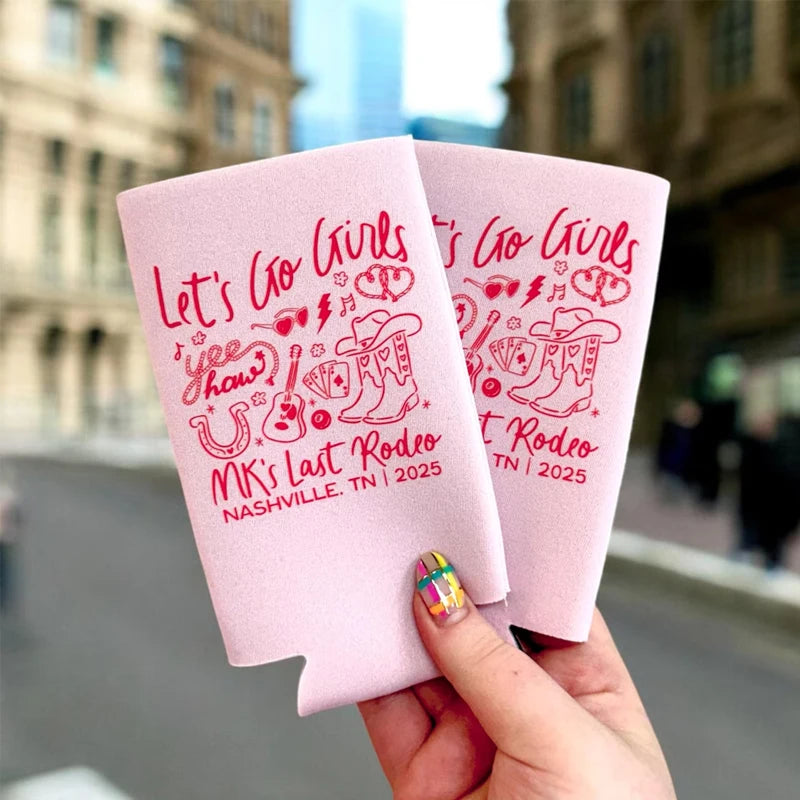 Let's Go Girls
yee
haw
MK's Last Rodeo
NASHVILLE, TN | 2025
's Go Girls
t Rodeo
TN | 2025